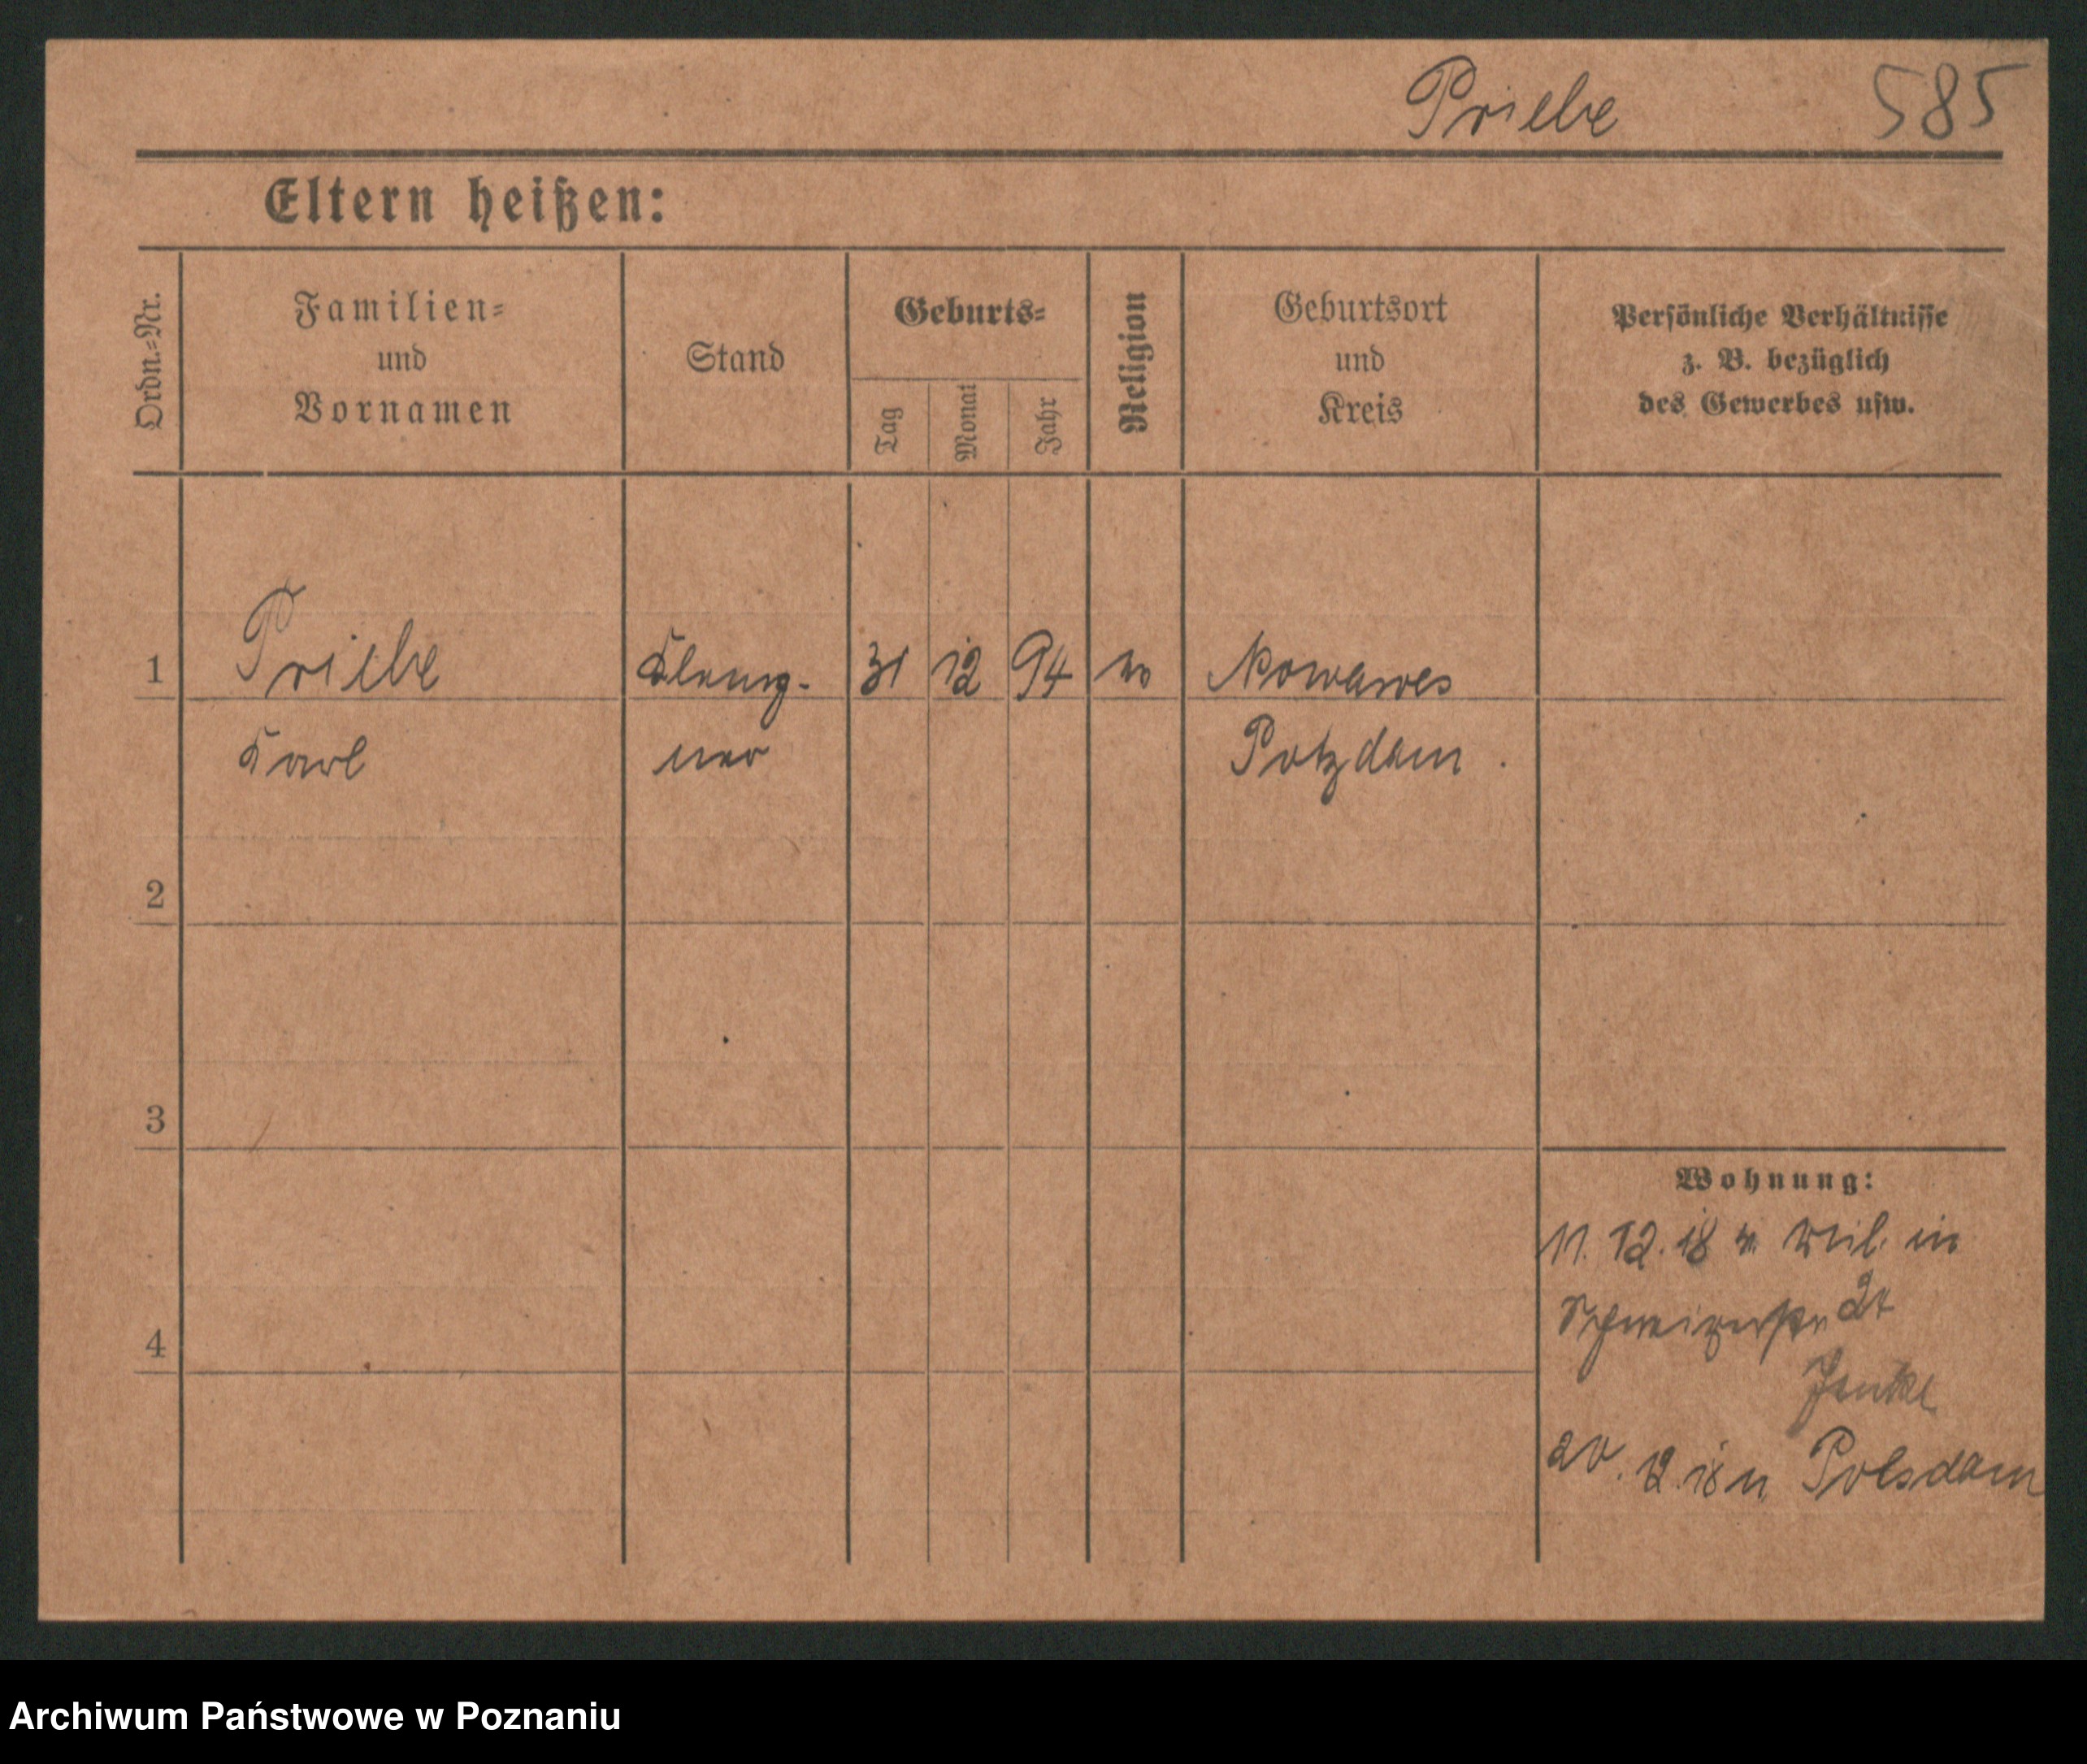 Priebe 585
Eltern heißen:
Ordn.-Nr.
Familien-
und
Vornamen
Stand
Geburts-
Tag
Monat
Jahr
Religion
Geburtsort
und
Kreis
Persönliche Verhältnisse
z. B. bezüglich
des Gewerbes usw.
1 Priebe Klemp- 31 12 94 Nowawes
Karl ner Potzdam.
2
3
4
Wohnung:
11. 12. 18 v. in
24
20. 12. 18 n. Potsdam
Archiwum Państwowe w Poznaniu